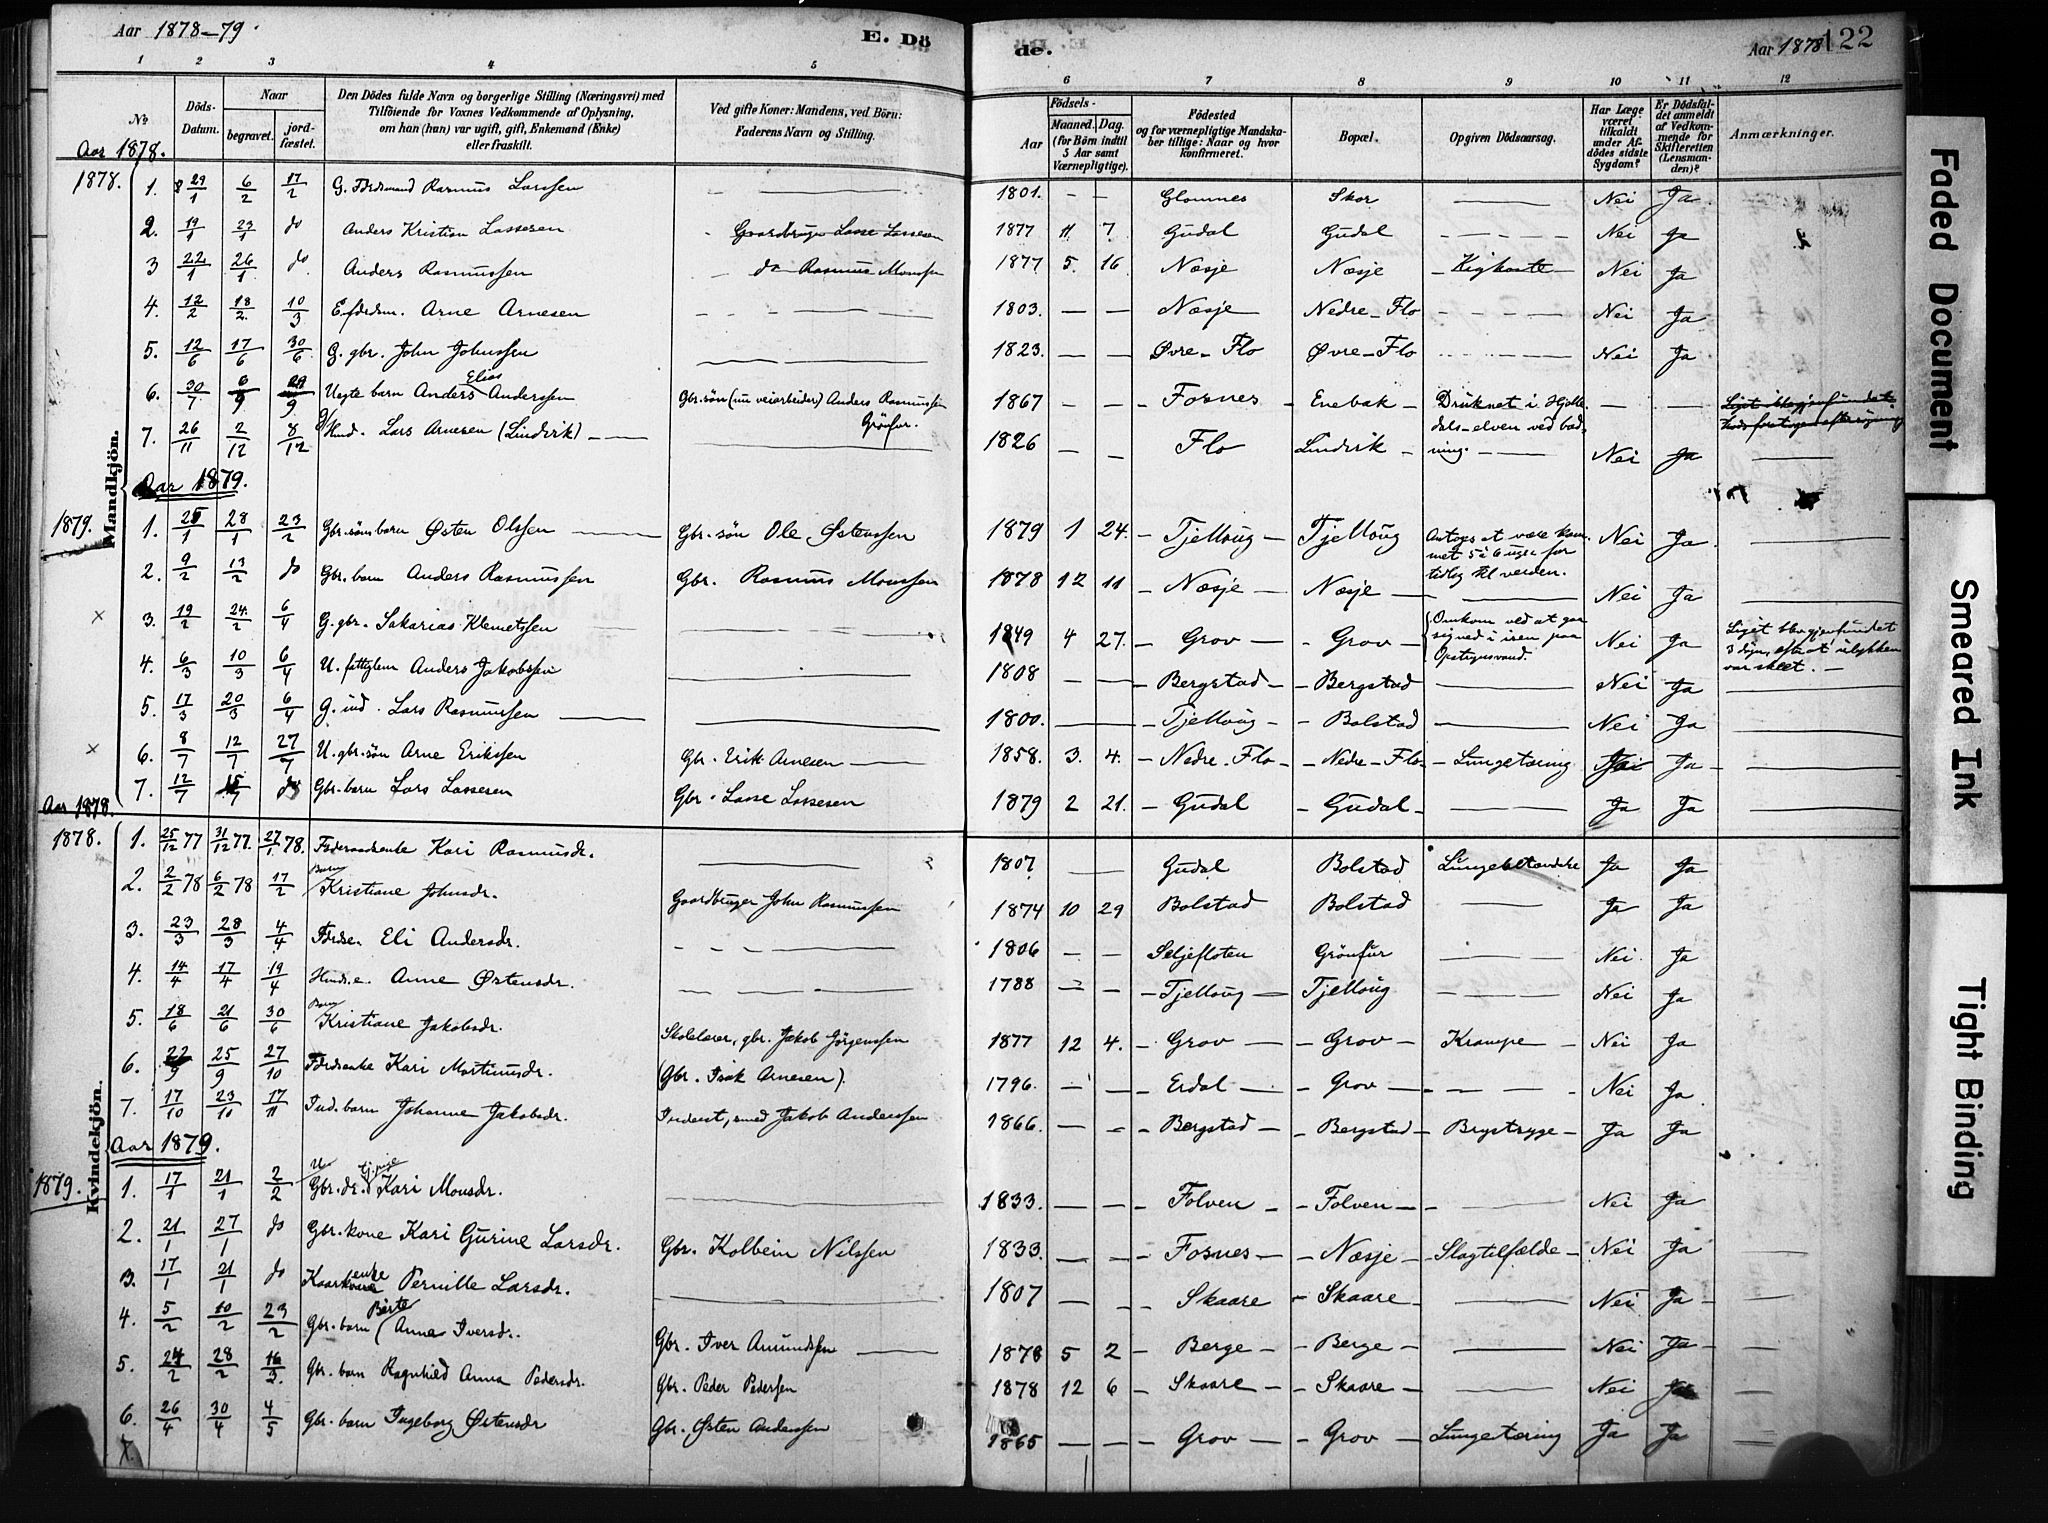 Aar 1878–79. E. Dö
de. Aar 1878 122
1 2 3 4 5 6 7 8 9 10 11 12
No
Döds-Datum.
Naar
begravet. jordfæstet.
Den Dödes fulde Navn og borgerlige Stilling (Næringsvei) med Tilföiende for Voxnes Vedkommende af Oplysning, om han (han) var ugift, gift, Enkemand (Enke) eller fraskilt.
Ved gifte Koner: Mandens, ved Börn: Faderens Navn og Stilling.
Födsels-
Aar Maaned. Dag. (for Börn indtil 5 Aar samt Værnepligtige).
Födested og for værnepligtige Mandskaber tillige: Naar og hvor konfirmeret.
Bopæl.
Opgiven Dödsaarsag.
Har Læge været tilkaldt under Afdödes sidste Sygdom?
Er Dödsfaldet anmeldt af Vedkommende for Skifteretten (Lensmanden)?
Anmærkninger.
Aar 1878.
Mandkjön.
1878. 1. 29/1 6/2 17/2 G. Fdrdmand Rasmus Larssen — 1801. – – Glomnes Skor — Nei Ja
2. 19/1 23/1 do Anders Kristian Lassesen Gaardbruger Lasse Lassesen 1877 11 7 Gudal Gudal — Nei Ja
3 22/1 26/1 do Anders Rasmussen do Rasmus Monssen 1877 5. 16 Næsje Næsje Kighoste Nei Ja
4. 12/2 18/2 10/3 E. fdrdm. Arne Arnesen — 1803. – – Næsje Nedre-Flo — Nei Ja
5. 12/6 17/6 30/6 G. gbr. John Johnssen — 1823. – – Øvre-Flo Øvre-Flo — Nei Ja
6. 30/7 6/9 29/9 Uegte barn Anders Elias Anderssen Gbr. søn (nu veiarbeider) Anders Rasmussen Grönfur. 1867 – – Fosnes Enebak Druknet i Hjelledals-elven ved badning. – –
7. 26/11 2/12 8/12 g/ Hmd. Lars Arnesen (Lindvik) — 1826 – – Flo Lindvik — Nei Ja —
Aar 1879.
1879. 1. 25/1 28/1 23/2 Gbr. söns barn Østen Olssen — Gbr. sön Ole Østenssen 1879 1 24. Tjelloug Tjelloug Antages at være kommet 5 à 6 uger for tidlig til verden. Nei Ja —
2. 9/2 13/2 do Gbr. barn Anders Rasmussen Gbr. Rasmus Monssen 1878 12 11 Næsje Næsje — Nei Ja —
3. 19/2 24/2 6/4 G. gbr. Sakarias Klemetssen — 1849 4 27. Grov Grov Omkom ved at gaa sig ned i isen paa Opstrynsvand. Nei Ja Liget blev gjenfundet 3 dage efter at ulykken var skeet.
4. 6/3 10/3 6/4 U. fattiglem Anders Jakobssen — 1808 – – Bergstad Bergstad — Nei Ja —
5. 17/3 20/3 6/4 G. ind. Lars Rasmussen — 1800. – – Tjelloug Bolstad — Nei Ja —
6. 8/7 12/7 27/7 U. gbr. sön Arne Erikssen Gbr. Erik Arnesen — 1858. 3. 4. Nedre-Flo Nedre-Flo Lungetæring Ja Ja —
7. 12/7 15/7 do Gbr. barn Lars Lassesen Gbr. Lasse Lassesen 1879 2 21. Gudal Gudal — Ja Ja —
Aar 1878.
Kvindekjön.
1878. 1. 25/12 77 31/12 77. 27/1 78. Föderaadsenke Kari Rasmusdr. — 1807 – – Gudal Bolstad Lungebetændelse Ja Ja
2. 2/2 78 6/2 78 17/2 Barn Kristiane Johnsdr. Gaardbruger John Rasmussen 1874 10 29 Bolstad Bolstad — Ja Ja
3. 23/3 28/3 4/4 Fdrdse. Eli Andersdr. — 1806 – – Seljefloten Grönfur — Nei Ja
4. 14/4 17/4 19/4 Hmds. e. Anne Østensdr. — 1788 – – Tjelloug Tjelloug — Nei Ja
5. 18/6 21/6 30/6 Barn Kristiane Jakobsdr. Skolelærer, gbr. Jakob Jörgenssen 1877 12 4. Grov Grov Krampe Nei Ja
6. 22/9 25/9 27/10 Fdrdsenke Kari Mortinusdr. (Gbr. Isak Arnesen). 1796. – – Erdal Grov — Nei Ja
7. 17/10 23/10 17/11 Ind. barn Johanne Jakobsdr. Inderst, smed Jakob Anderssen 1866. – – Bergstad Bergstad Brystsyge Ja Ja
Aar 1879.
1879. 1. 17/1 21/1 2/2 U. Gbr. dr. tj. pige Kari Monsdr. — 1833. – – Folven Folven — Nei Ja
2. 21/1 27/1 do Gbr. kone Kari Gurine Larsdr. Gbr. Kolbein Nilssen 1833. – – Fosnes Næsje Slagtilfælde Nei Ja —
3. 17/1 21/1 do Kaarenke Pernille Larsdr. — 1807 – – Skaare Skaare — Nei Ja —
4. 5/2 10/2 23/2 Gbr. barn Berte Anna Iversdr. Gbr. Iver Amundssen — 1878 5 2 Berge Berge — Nei Ja —
5. 24/2 28/2 16/3. Gbr. barn Ragnhild Anna Pedersdr. Gbr. Peder Pedersen 1878 12 6 Skaare Skaare — Nei Ja —
6. 26/4 30/4 4/5 Gbr. barn Ingeborg Østensdr Gbr. Østen Anderssen 1865 – – Grov Grov Lungetæring Ja Ja —
Faded Document
Smeared Ink
Tight Binding